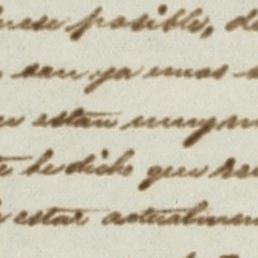 posible, de
son ya unos
estan muy m
he dicho que
estar actualmen